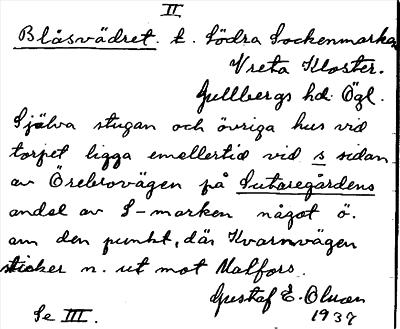 II
Blåsvädret. t. Södra Sockenmarken
Vreta Kloster.
Gullbergs hd. Ögl.
Själva stugan och övriga hus vid
torpet ligga emellertid vid s sidan
av Örebrovägen på Sutaregårdens
andel av S-marken något ö.
om den punkt, där Kvarnvägen
sticker n. ut mot Malfors.
Gustaf E. Olsson
1937
Se III.